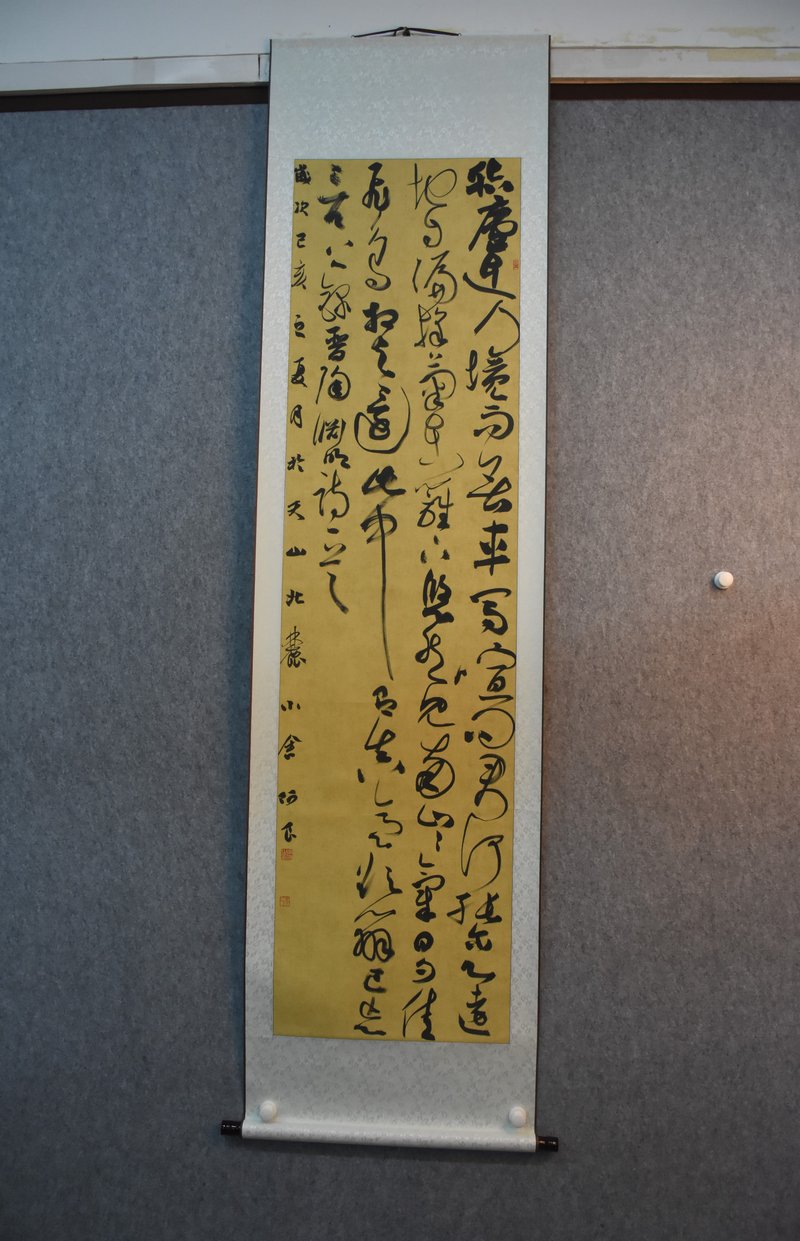 結廬在人境而無車馬喧問君何能爾心遠
地自偏採菊東籬下悠然見南山山氣日夕佳
飛鳥相與還此中有真意欲辨已忘
言錄晉陶淵明詩
歲次己亥之夏月於天山北麓小舍